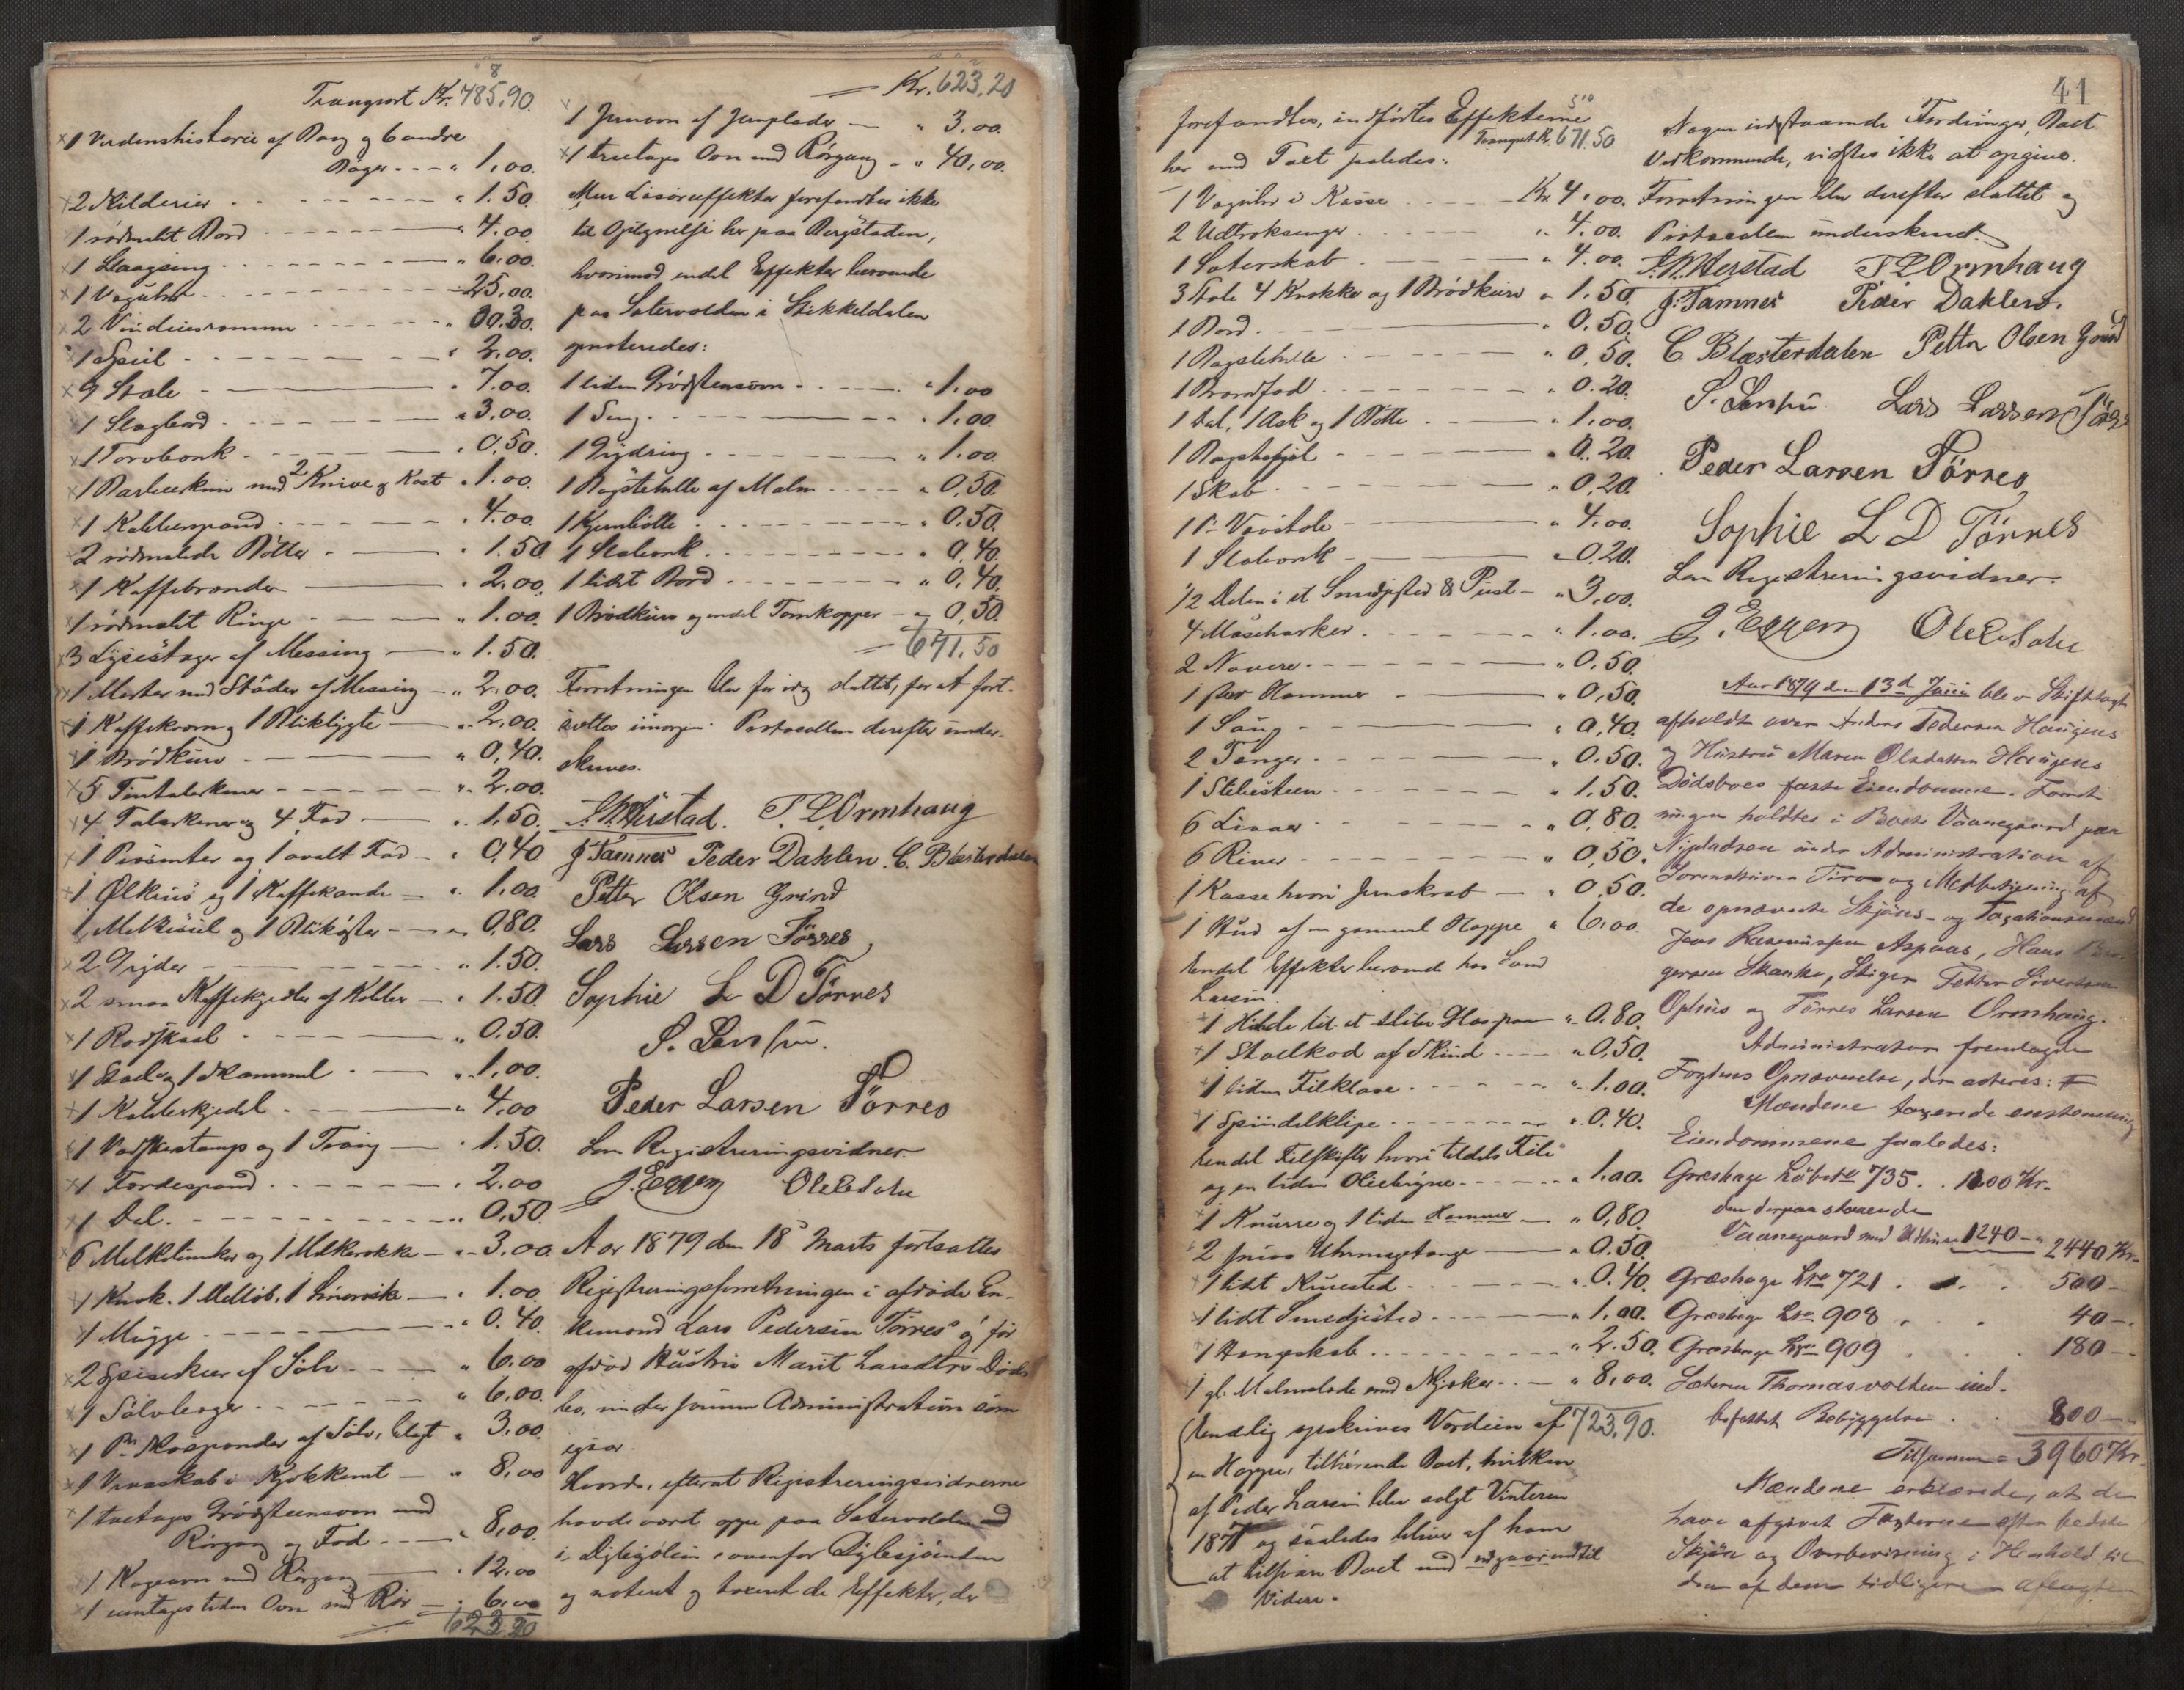 Transport Kr. 485,90.
1 Verdenshistorie af Bang og 6 andre
Bøger - - - " 1,00.
2 Kilderier - - - " 1.50.
1 rödmalt Bord - - - " 4.00.
1 Slaagseng - - - " 6.00.
1 Væguhr - - - 25,00.
2 Vinduesrammer - - - "
1 Speil - - - " 2,00.
9 Stole - - - " 7.00.
1 Slagbord - - - " 3,00.
1 - - - " 0,50.
1 Barbeerkniv med 2 Knive og Kost " 1.00.
1 Kobberspand - - - " 4.00.
2 rödmalede Bötter - - - " 1.50
1 Kaffebrænder - - - " 2,00.
1 rödmalt Ringe - - - " 1.00.
3 Lysestager af Messing - " 1.50.
1 Morter med Stöder af Messing - " 2,00.
1 Kaffekværn og 1 Bliklygte - " 2,00.
1 Brödkurv - - - " 0,40.
5 Tintalerkener - - - " 2.00.
4 Talerkener og 4 Fad - " 1.50.
1 og 1 ovalt Fad - " 0,40
1 Ølkrus og 1 Kaffekande - " 1,00.
1 Melkesiil og 1 - " 0,80.
2 Gryder - - - " 1.50.
2 smaa Kaffekjedler af Kobber - " 1.50.
1 - - - " 0.50.
1 Stol og 1 Skammel - " 1,00.
1 Kobberkjedel - - - " 4,00
1 Vadskestamp og 1 - " 1.50.
1 - - - " 2.00
1 Dal - - - " 0,50.
6 Melkebunker og 1 - " 3.00.
1 - " 1.00.
1 Mugge - - - " 0.40.
2 Spiseskeer af Sölv - " 6.00
1 Sölvbæger - - - " 6,00.
1 Pr af Sölv, - " 3,00.
1 i Kjökkenet - " 8,00
1 toetages Grödsteensovn med
Rörgang og Fod - - - " 8,00.
1 Kogeovn med Rörgang - " 12.00
1 eenetages liden Ovn med Rör - " 6,00
623.20
Kr. 623,20
1 Jernovn af Jernplader - " 3,00.
1 treetages Ovn med Rörgang - " 40,00.
Mere Lösöreeffekter forefandtes ikke
til Optegnelse her paa Bergstaden,
hvorimod endel Effekter beroende
paa Sætervolden i Stikkeldalen
opnoteredes:
1 liden Grödstensovn - - - " 1.00
1 Seng - - - " 1,00.
1 Gryde - - - " 1.00
1 Bagstehelle af Malm - - - " 0,50.
1 - - - " 0,50.
1 - - - " 0,40.
1 lidet Bord - - - " 0,40.
1 Brödkurv og endel Tomkopper - " 0,50.
671.50
Forretningen blev for idag sluttet, for at fort-
sættes imorgen. Protocollen derefter under-
skreves.
Herstad. T L Ormhaug
J. Tamnes Peder Dahlen. C. Blæsterdalen
Petter Olsen Grind
Lars Larsen Törres
Sophie L D Törres
Peder Larsen Törres
Som Registreringsvidner.
J. Eggen
Aar 1879 den 18 Marts fortsattes
Registreringsforretningen i afdöde En-
kemand Lars Pedersen Törres' og för
afdöd Hustru Marit Larsdtrs Döds
bo, under samme Administration som
igaar.
Hvorda, efterat Registreringsvidnerne
havde været oppe paa Sætervolden
i ovenfor
og noteret og taxeret de Effekter, der
41
forefandtes, indförtes Effekterne
her med Taxt saaledes: Transport Kr. 671.50
1 Væguhr i Kasse - - - Kr. 4,00.
2 Udtræksenger - - - " 4,00.
1 Sæterskab - - - " 4.00.
3 Stole 4 Krakke og 1 Brödkurv " 1.50.
1 Bord - - - " 0,50.
1 Bagstehelle - - - " 0,50.
1 - - - " 0.20.
1 Dal, 1 Ask og 1 Bötte - " 1.00.
1 Bagstefjöl - - - " 0.20.
1 Skab - - - " 0,20.
1 Pr. Vævstole - - - " 4.00.
1 - - - " 0.20.
1/2 Delen i et Smedjested & Pust - " 3,00.
4 - - - " 1.00.
2 Navere - - - " 0.50.
1 Hammer - - - " 0,50.
1 - - - " 0,40.
2 Tænger - - - " 0.50.
1 Slibesteen - - - " 1.50.
6 Liaaer - - - " 0,80.
6 River - - - " 0,50.
1 Kasse hvori Jernskrab - " 0,50.
1 Hud af en gammel Hoppe " 6,00.
Endel Effekter beroende hos Svend
Larsen.
1 til et - " 0.80.
1 af Skind - - - " 0,50.
1 liden Filklove - - - " 1.00.
1 Spindelklype - - - " 0.40.
Endel Filskafter hvori tildels File
og en liden - - - " 1.00.
1 Knurre og 1 liden Hammer - " 0,80.
2 Uhrmagertænger - " 0.50.
1 lidet - - - " 0.40.
1 lidet Smedjested - - - " 1.00.
1 Hængeskab - - - " 2.50.
1 gl. - " 8,00.
Endelig opskrives Værdien af 723,90.
en Hoppe, tilhörende Boet, hvilken
af Peder Larsen blev solgt Vinteren
og saaledes bliver af ham
at tilsvare Boet med
Videre.
Nogen udestaaende Fordringer, Boet
vedkommende, vidstes ikke at opgives.
Forretningen blev derefter sluttet og
Protocollen underskrevet.
Herstad T L Ormhaug
J. Tamnes Peder Dahlen.
C Blæsterdalen Petter Olsen Grind
Lars Larsen Törres
Peder Larsen Törres
Sophie L D Törres
Som Registreringsvidner.
J. Eggen
Aar 1879 den 13d Juni blev Skiftetaxt
afholdt over Anders Pedersen Haugens
og Hustru Maren Olsdatter Haugens
Dödsboes faste Eiendomme. Forret
ningen holdtes i Boets Vaanegaard paa
under Administration af
Sorenskriver og Medbetjening af
de opnævnte Skjöns- og Taxationsmænd
Jens Rasmussen Aspaas, Hans
Skanke, Stiger Petter Sivertsen
Ophus og Törres Larsen Ormhaug.
Administrator fremlagde
Fogdens Opnævnelse, der acteres:
Mændene taxerede enstemmig
Eiendommene saaledes:
Græshage Löbeno 735 . . 1200 Kr.
den derpaa staaende
Vaanegaard med Udhuse 1240 - " 2440 Kr.
Græshage Lno 721 . . . 500 -
Græshage Lno 908 . . 40 -
Græshage Lno 909 . . . 180 -
Sæteren Thomasvolden med
befattet Bebyggelse . . 800 -
Tilsammen = 3960 Kr.
Mændene erklærede, at de
have afgivet Taxterne efter bedste
Skjön og Overbevisning i Henhold til
den af dem tidligere aflagte